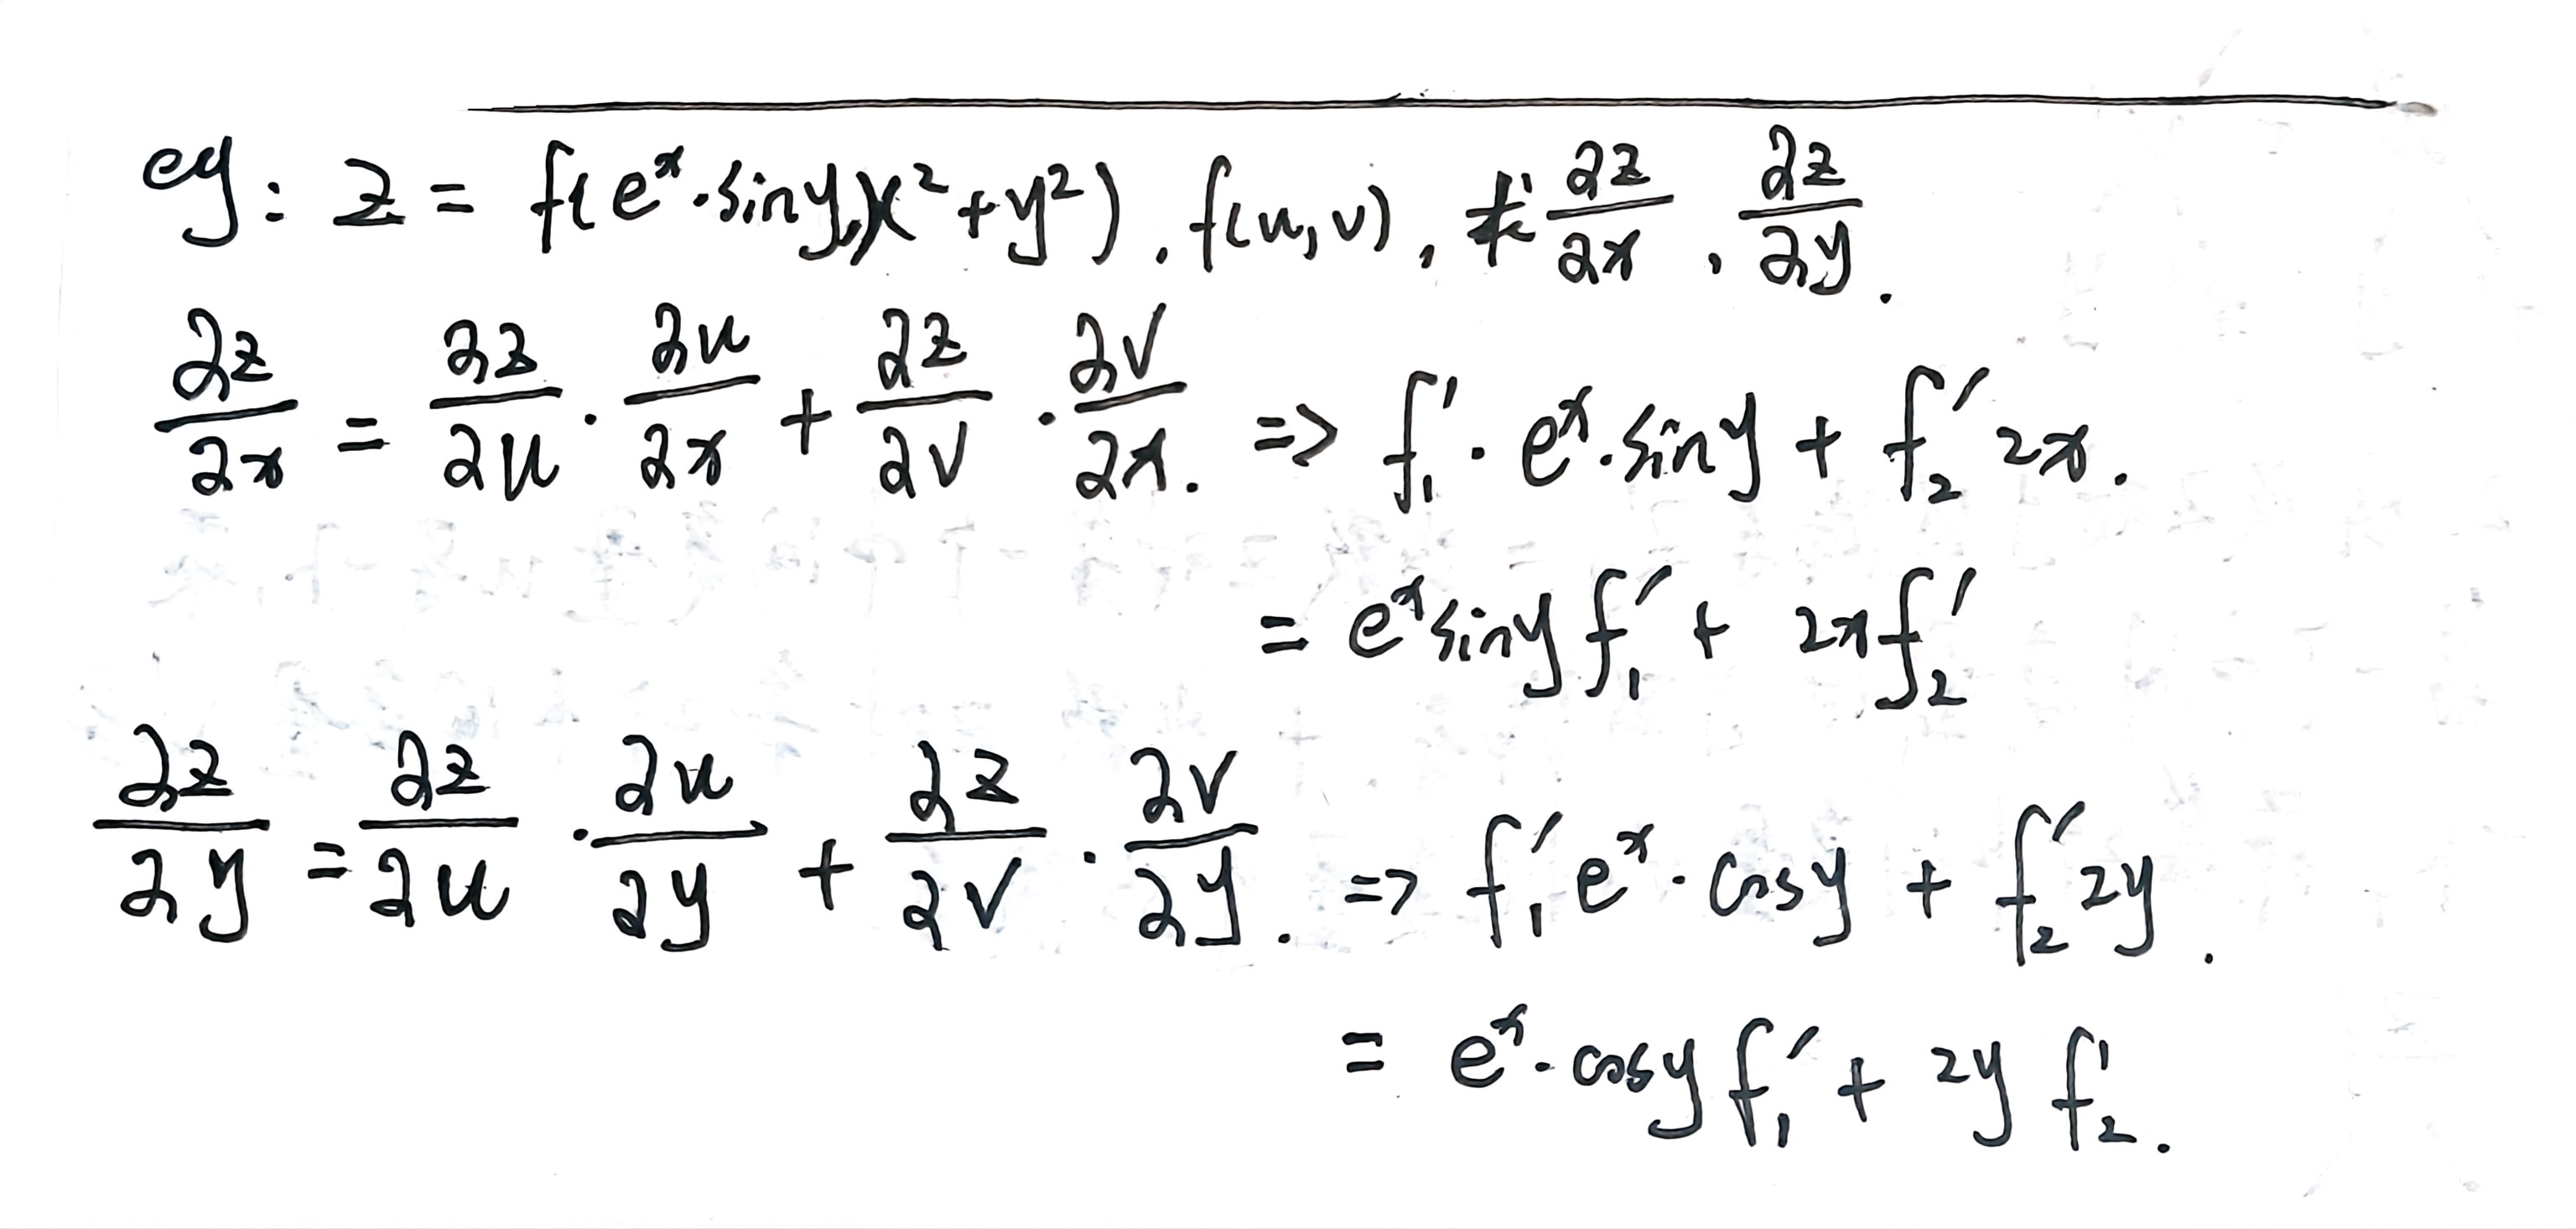 eg: z = f(e^x·siny, x²+y²), f(u,v), 求 ∂z/∂x, ∂z/∂y.
∂z/∂x = ∂z/∂u · ∂u/∂x + ∂z/∂v · ∂v/∂x. => f₁′· e^x·siny + f₂′ 2x.
= e^x siny f₁′ + 2x f₂′
∂z/∂y = ∂z/∂u · ∂u/∂y + ∂z/∂v · ∂v/∂y. => f₁′ e^x· cosy + f₂′ 2y.
= e^x· cosy f₁′ + 2y f₂′.